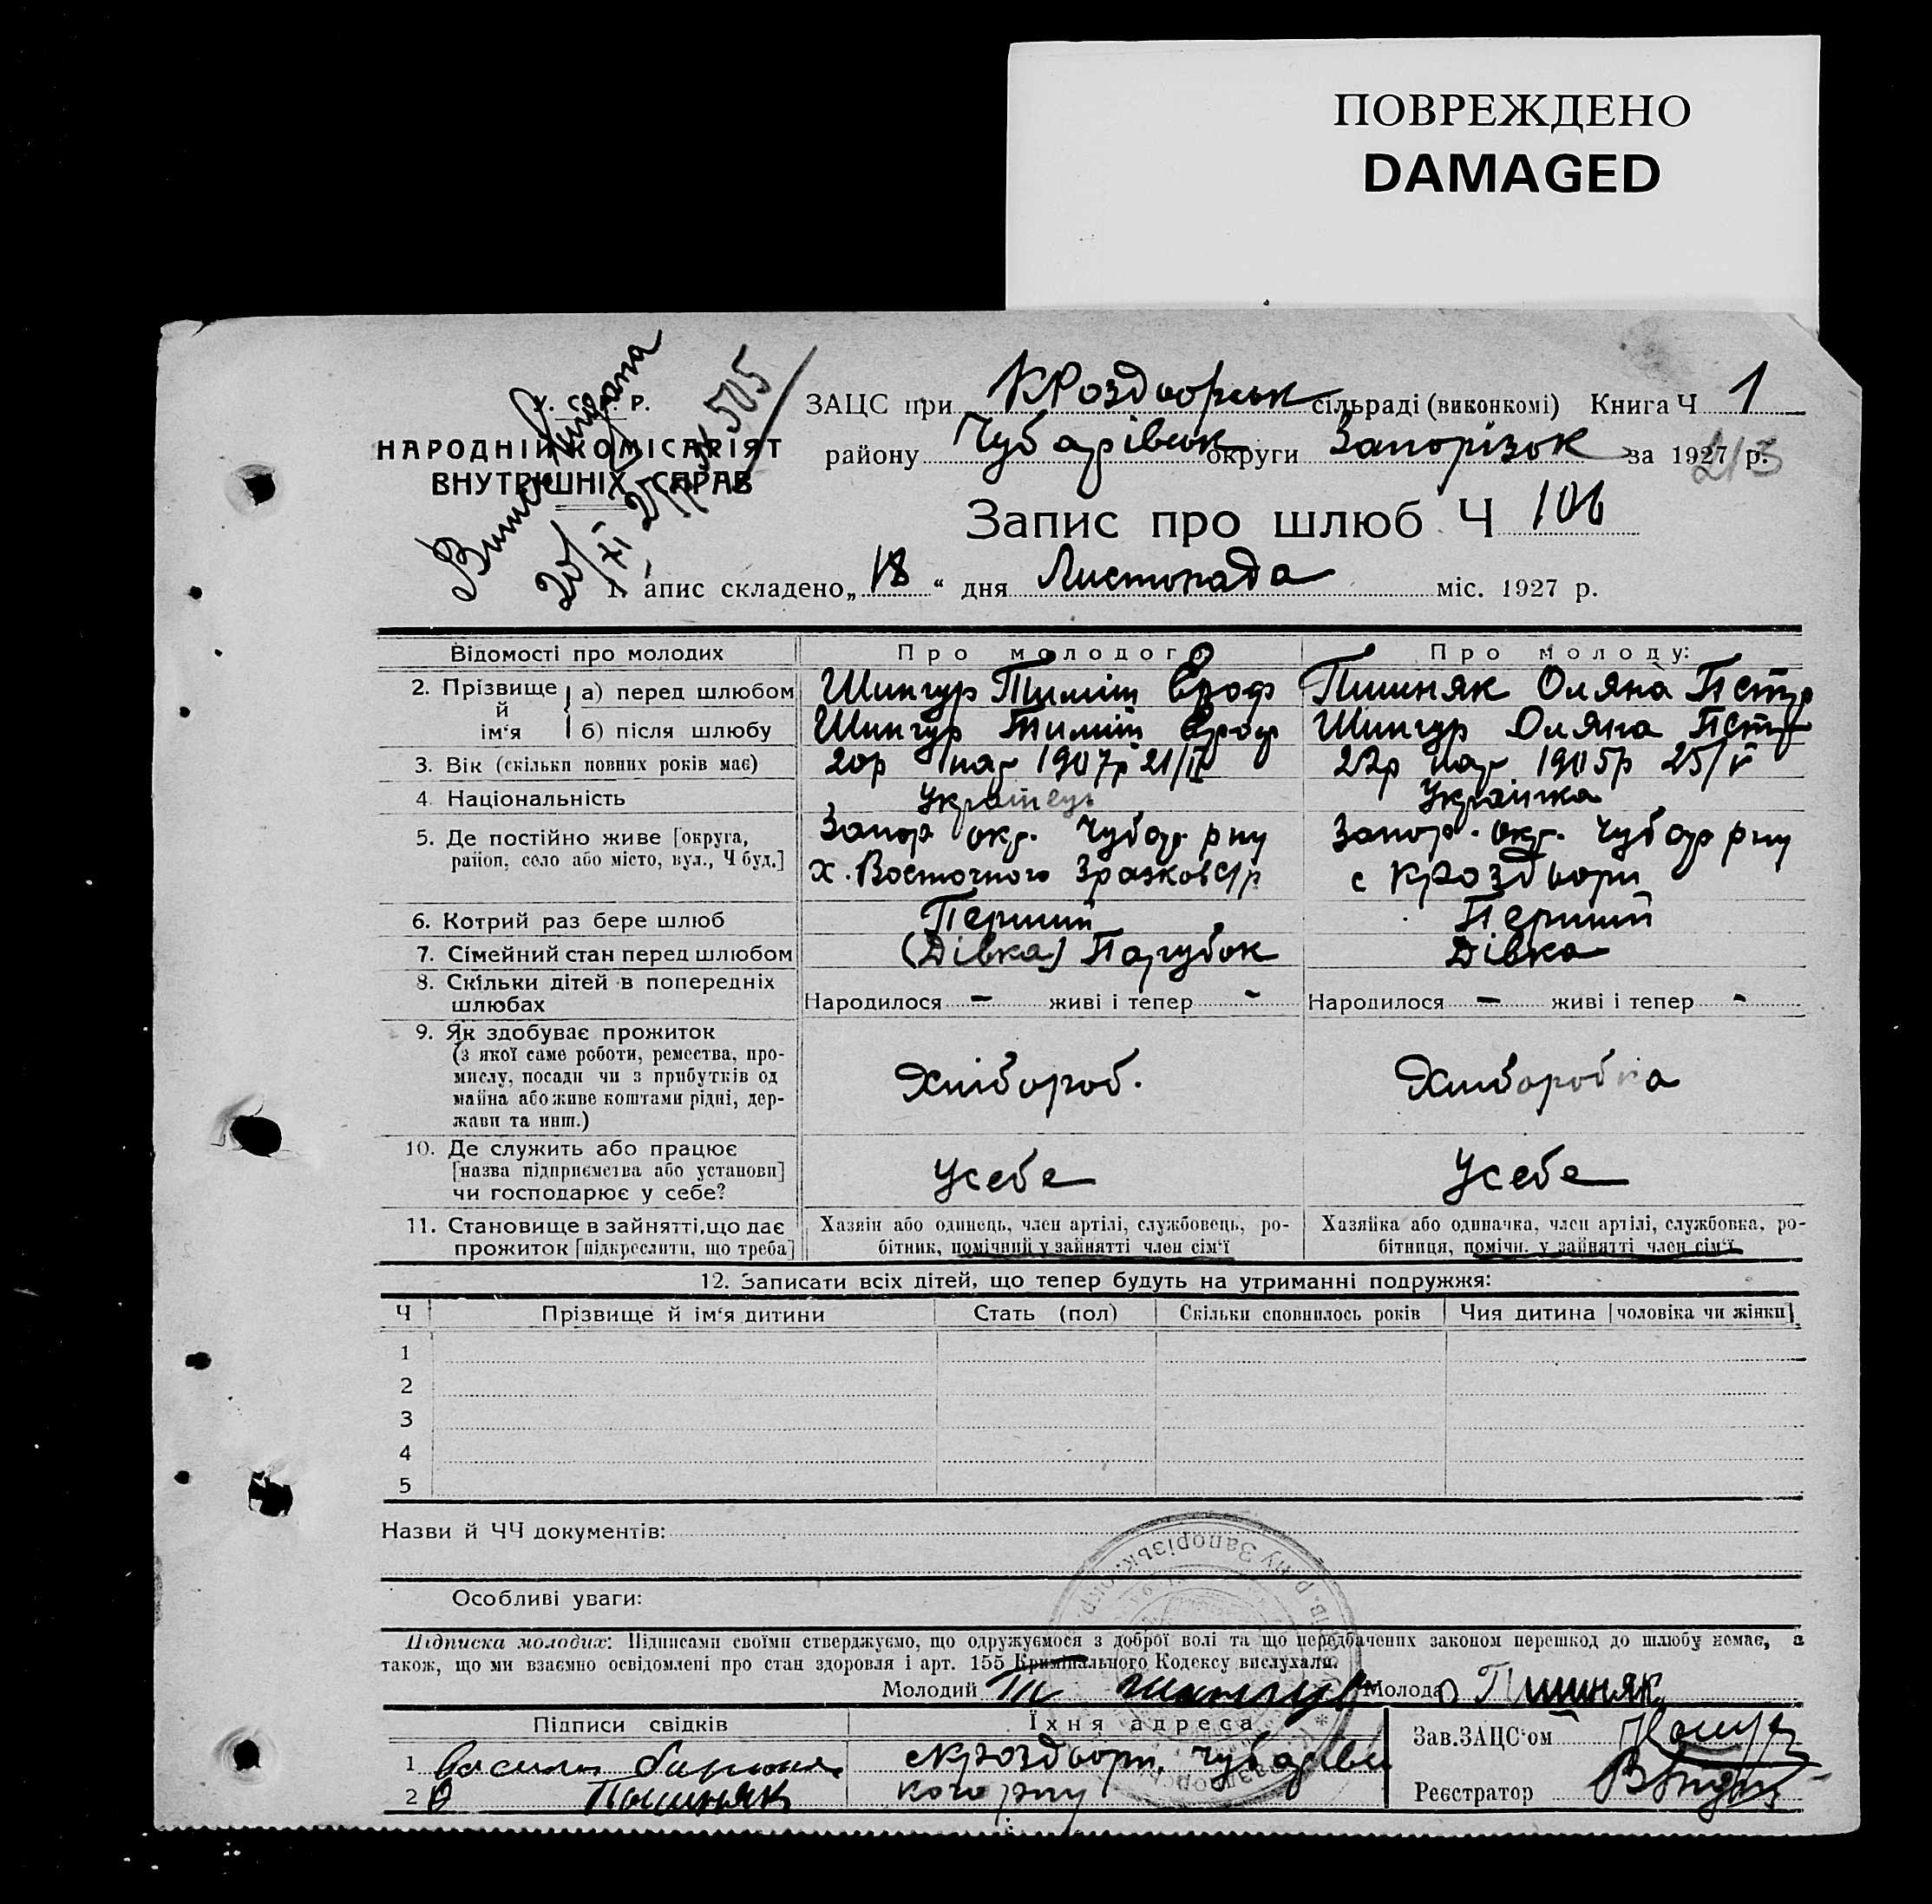 ПОВРЕЖДЕНО
DAMAGED
У. С. Р. Р.
НАРОДНІЙ КОМІСАРІЯТ
ВНУТРІШНІХ СПРАВ
ЗАЦС при КРоздорськ сільраді (виконкомі) Книга Ч 1
району Чубарівськ округи Запорізьк за 1927 р.
Запис про шлюб Ч 106
1. апис складено „18“ дня Листопада міс. 1927 р.
Відомості про молодих Про молодого Про молоду:
2. Прізвище й ім‘я а) перед шлюбом Шингур Тиміш Ероф Пишняк Оляна Петр
б) після шлюбу Шингур Тиміш Ероф Шингур Оляна Петр
3. Вік (скільки повних років має) 20р нар 1907р 21/ІІ 22р нар 1905р 25/V
4. Національність Українець Українка
5. Де постійно живе [округа, Запор окр. Чубар рну Запор. окр. Чубар рну
район, село або місто, вул., Ч буд.] х. Восточного с КРоздори
6. Котрий раз бере шлюб Перший Перший
7. Сімейний стан перед шлюбом (Дівка) Парубок Дівка
8. Скільки дітей в попередніх
шлюбах Народилося - живі і тепер - Народилося - живі і тепер -
9. Як здобуває прожиток
(з якої саме роботи, ремества, про-
мислу, посади чи з прибутків од Хлібороб. Хліборобка
майна або живе коштами рідні, дер-
жави та инш.)
10. Де служить або працює
[назва підприємства або установи] Усебе Усебе
чи господарює у себе?
11. Становище в зайнятті, що дає Хазяїн або одинець, член артілі, службовець, ро- Хазяйка або одиначка, член артілі, службовка, ро-
прожиток [підкреслити, що треба] бітник, помічний у зайнятті член сім‘ї бітниця, помічн. у зайнятті член сім‘ї
12. Записати всіх дітей, що тепер будуть на утриманні подружжя:
Ч Прізвище й ім‘я дитини Стать (пол) Скільки сповнилось років Чия дитина [чоловіка чи жінки]
1
2
3
4
5
Назви й ЧЧ документів:
Особливі уваги:
Підписка молодих: Підписами своїми стверджуємо, що одружуємося з доброї волі та що передбачених законом перешкод до шлюбу немає, а
також, що ми взаємно освідомлені про стан здоровля і арт. 155 Кримінального Кодексу вислухали.
Молодий Ти Шингур Молода О Пишняк
Підписи свідків Їхня адреса Зав. ЗАЦС‘ом
1 Василь с КРоздори, Чубарівс
2 О Пишняк кого рну Реєстратор